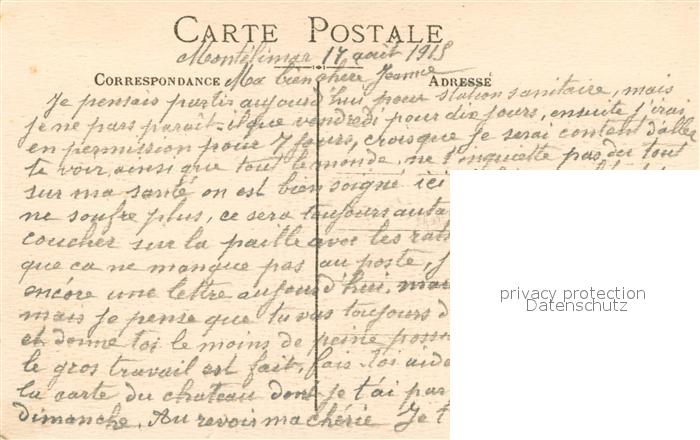 CARTE POSTALE
Montélimar 17 août 1915
CORRESPONDANCE Ma bien chère Jeanne ADRESSÉ
Je pensais partir aujourd'hui pour station sanitaire, mais
je ne pars paraît-il que vendredi pour dix jours, ensuite j'irai
en permission pour 7 jours, crois que je serai content d'aller
te voir, ainsi que tout le monde, ne t'inquiette pas du tout
sur ma santé on est bien soigné ici
ne soufre plus, ce sera toujours auta
coucher sur la paille avec les rats
que ca ne manque pas au poste, j
encore une lettre aujourd'hui, mai
mais je pense que tu vas toujours d
et donne toi le moins de peine poss
le gros travail est fait, fais toi aide
la carte du chateau dont je t'ai par
dimanche. Au revoir ma chérie Je t
privacy protection
Datenschutz